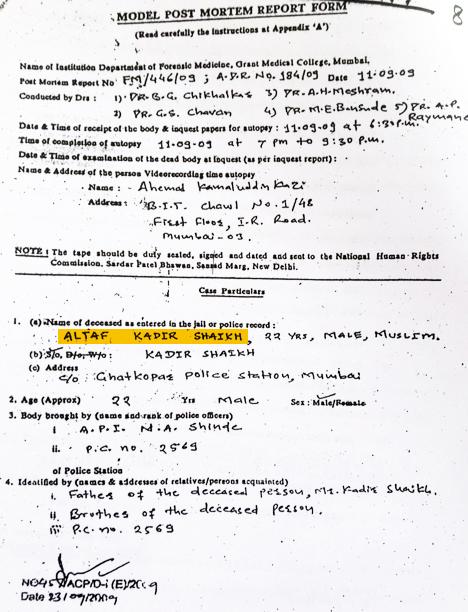 8
MODEL POST MORTEM REPORT FORM
(Read carefully the instructions at Appendix 'A')
Name of Institution Department of Forensic Medicine, Grant Medical College, Mumbai,
Post Mortem Report No FM/446/09 ; A.D.R. No. 184/09 Date 11-09-09
Conducted by Drs : 1) DR. B.G. Chikhalkar 3) DR. A.H. Meshram.
2) DR. G.S. Chavan 4) DR. M.E. Bansude 5) Dr. A.P.
Date & Time of receipt of the body & inquest papers for autopsy : 11-09-09 at 6:35 p.m.
Time of completion of autopsy 11-09-09 at 7 pm to 9:30 p.m.
Date & Time of examination of the dead body at Inquest (as per inquest report) :
Name & Address of the person Videorecording time autopsy
Name : - Ahemad Kamaluddin Kazi
Address : B.I.T. Chawl No. 1/48
First Floor, I.R. Road.
Mumbai-03.
NOTE : The tape should be duly sealed, signed and dated and sent to the National Human Rights
Commission, Sardar Patel Bhawan, Sansad Marg, New Delhi.
Case Particulars
1. (a) Name of deceased as entered in the jail or police record :
ALTAF KADIR SHAIKH, 22 YRS, MALE, MUSLIM.
(b) S/o, D/o, W/o : KADIR SHAIKH
(c) Address
C/o : Ghatkopar Police Station, Mumbai
2. Age (Approx) 22 Yrs Male Sex : Male/Female
3. Body brought by (name and rank of police officers)
i A.P.I. N.A. Shinde
ii. P.C. no. 2569
of Police Station
4. Identified by (names & addresses of relatives/persons acquainted)
i. Father of the deceased person, Mr. Kadir Shaikh.
ii. Brother of the deceased person.
iii P.C. no. 2569
ACP/D-i (E)/2009
Date 23/09/2009